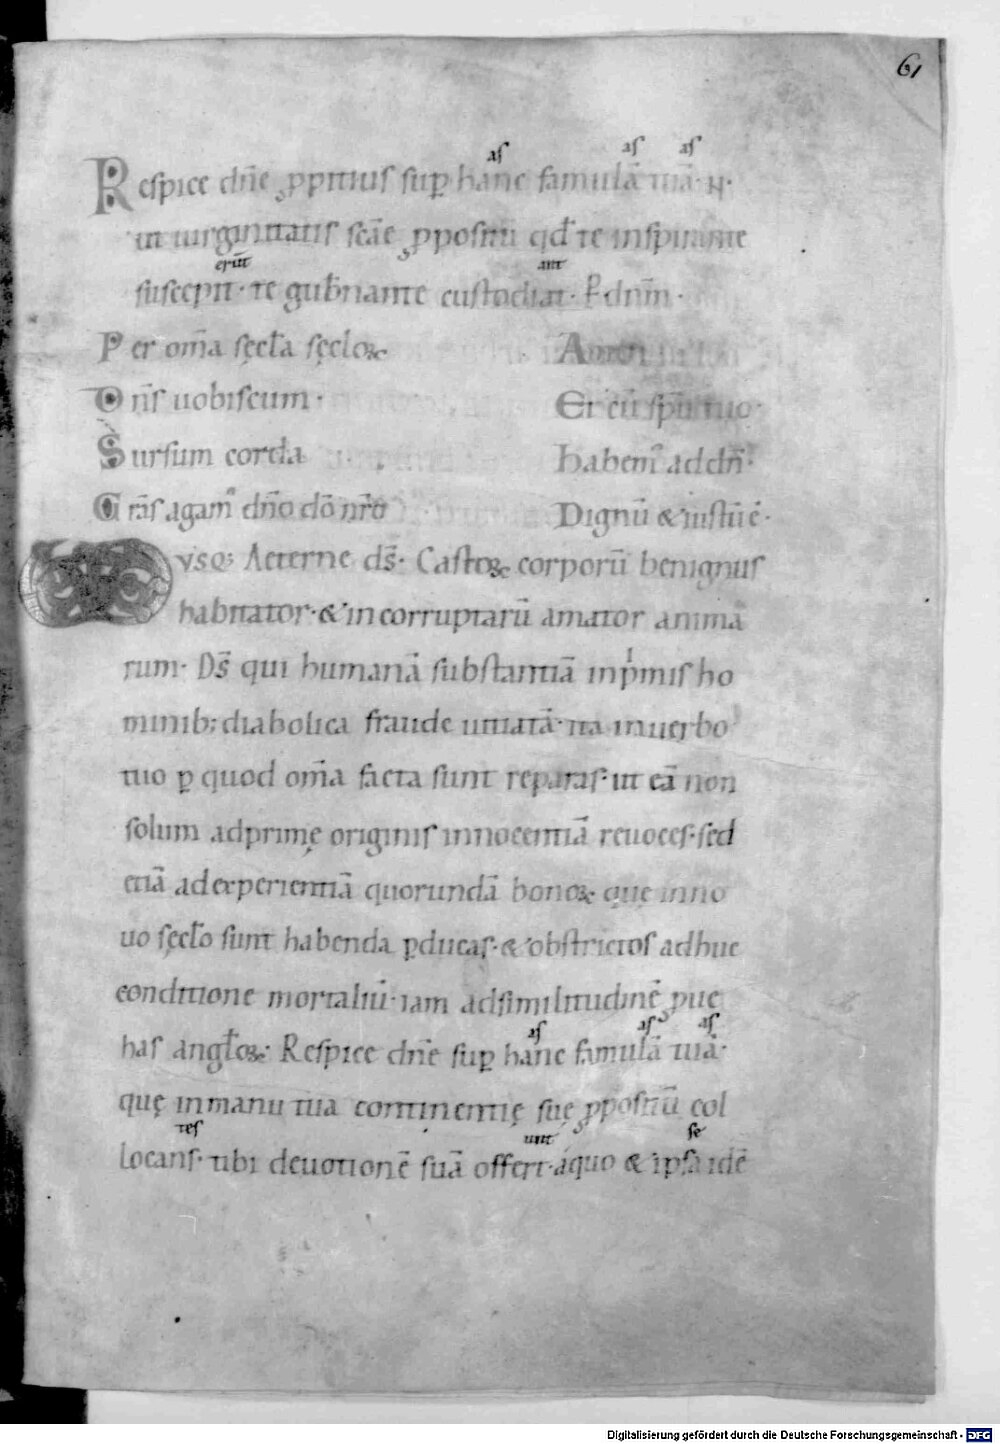 61
as as as
Respice dn̄e ꝓpitius suꝑ hanc famulā tuā· N·
ut uirginitatis scāe ꝓpositū qđ te inspirante
erūt ant
suscepit· te gub̄nante custodiat· P dnm̄·
Per om̄a sęcla sęcloꝝ Amen
Dn̄s uobiscum· Et cū spū tuo·
Sursum corda Habem᾽ ad dn̄·
Grās agam᾽ dn̄o dō nr̄o Dignū & iustū ē·
VSQ; Aeterne ds̄· Castoꝝ corporū benignus
habitator· & incorruptarū amator anima
rum· Ds̄ qui humanā substantiā inpͥmis ho
minib; diabolica fraude uitiatā· ita in uerbo
tuo ꝑ quod om̄a facta sunt reparas· ut eā non
solum ad primę originis innocentiā reuoces· sed
etiā ad experientiā quorundā bonoꝝ quę in no
uo sęclo sunt habenda ꝑducas· & obstrictos adhuc
conditione mortaliū· iam ad similitudinē ꝓue
has angloꝝ· Respice dn̄e suꝑ hanc famulā tuā·
as as as
quę in manu tua continentię suę ꝓpositū col
tes unt se
locans· tibi deuotionē suā offert· á quo & ipsa idē
Digitalisierung gefördert durch die Deutsche Forschungsgemeinschaft - DFG